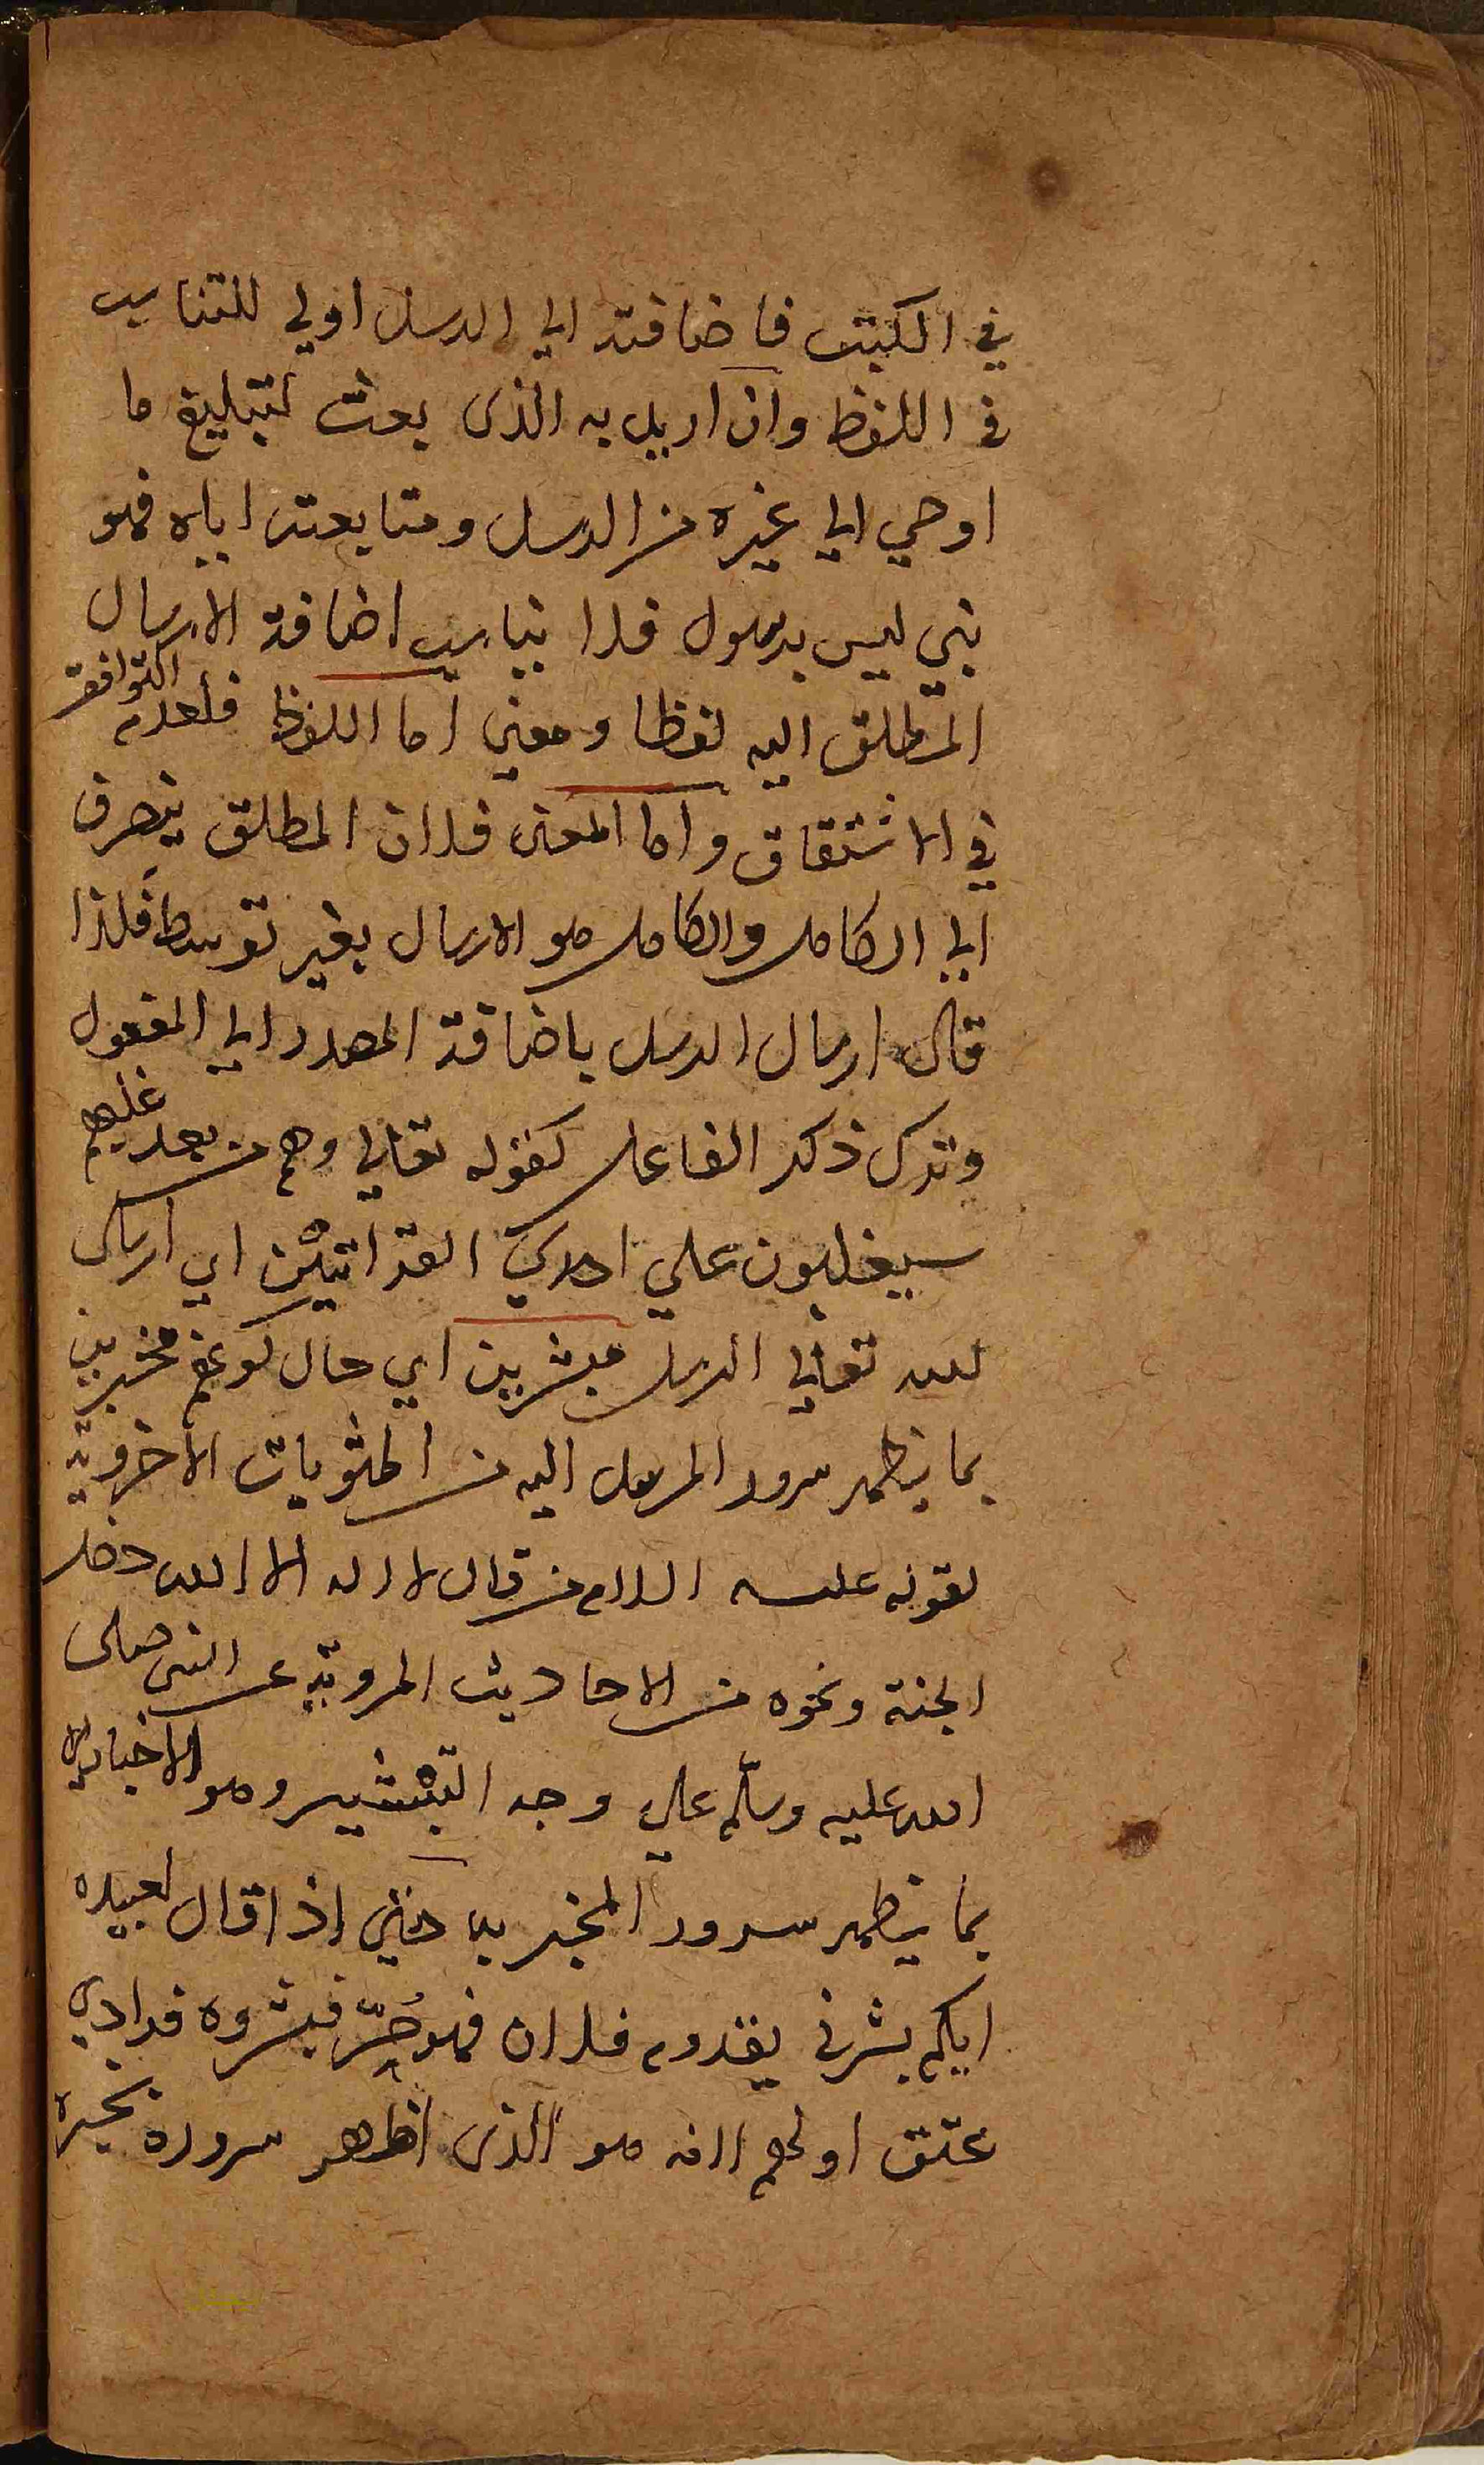 في الكتب فاضافته الي الرسل اولي للتناسب
في اللفظ وان اريد به الذي بعث لتبليغ ما
اوحي الي غيره من الرسل ومتابعته اياه فهو
نبي ليس برسول فلا يناسب اضافة الارسال
المطلق اليه لفظا ومعني اما اللفظ فلعدم التوافق
في الاشتقاق واما المعني فلان المطلق ينصرف
الي الكامل والكامل هو الارسال بغير توسط فلذا
قال ارسال الرسل باضافة المصدر الي المفعول
وترك ذكر الفاعل كقوله تعالي وهم من بعد غلبهم
سيغلبون علي احدي القراتين اي ارسال
الله تعالي الرسل مبشرين اي حال كونهم مخبرين
بما يظهر سرور المرسل اليه من المثوبات الاخروية
لقوله عليه السلام من قال لا اله الا الله دخل
الجنة ونحوه من الاحاديث المروية عن النبي صلى
الله عليه وسلم علي وجه التبشير وهو الاخبار
بما يظهر سرور المخبر به حتي إذا قال لعبيده
ايكم بشرني بقدوم فلان فهو حُرّ فبشروه فرادي
عتق اولهم لانه هو الذي اظهر سروره بخبره